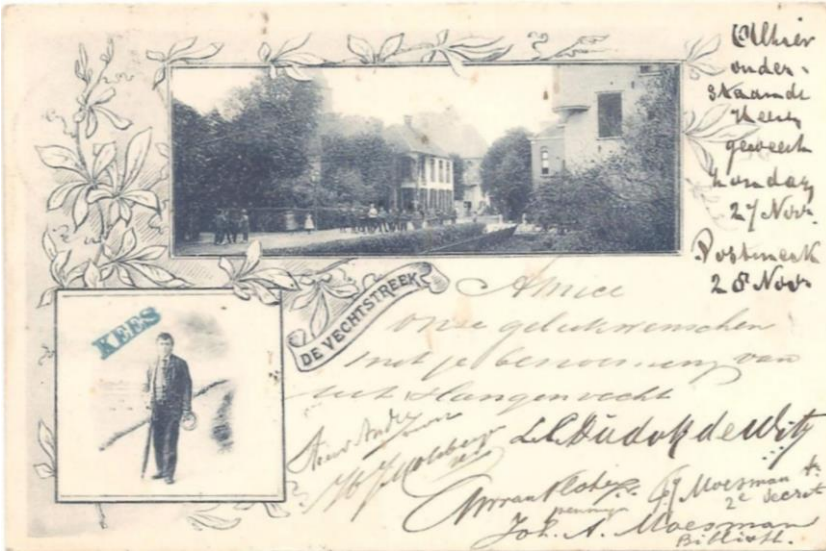 Alhier
onder-
staande
Heeren
geweest
Zondag
27 Nov.
Postmerk
28 Nov.
KEES
DE VECHTSTREEK
Amice
onze gelukwenschen
met je benoeming van
uit Slangenvecht
L.C. Dudok de Wit
Moesman
2e Secret
penningm
Joh. A. Moesman
Biblioth.